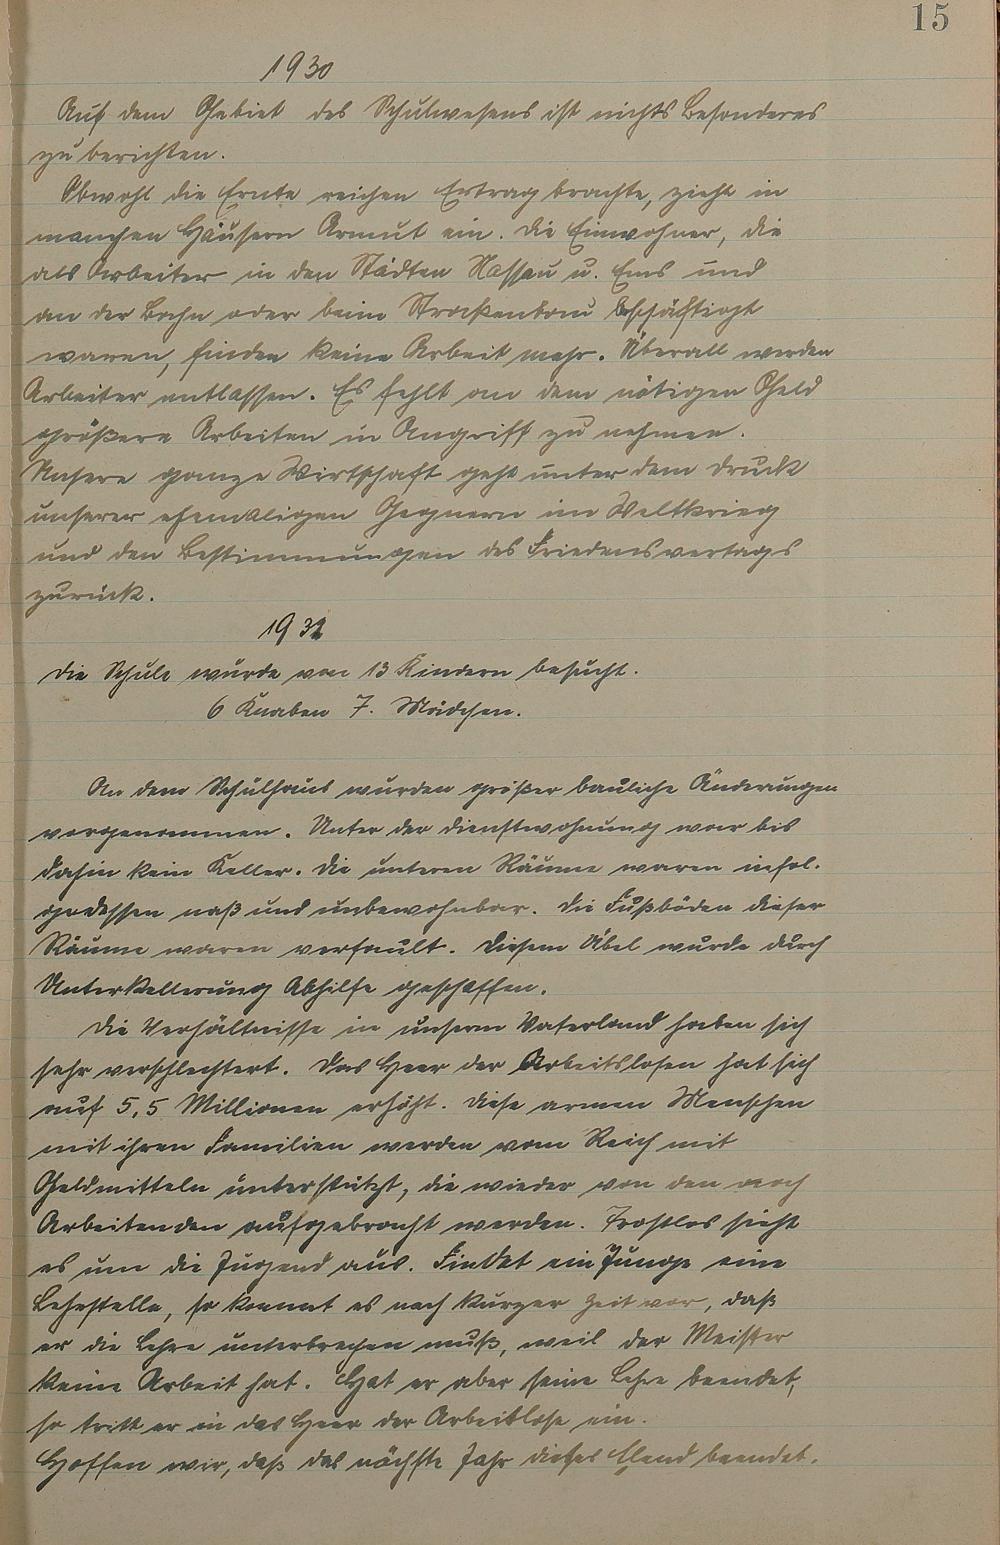 15
1930
Auf dem Gebiet des Schulwesens ist nichts Besonderes
zu berichten.
Obwohl die Ernte reichen Ertrag brachte, zieht in
manchen Häusern Armut ein. Die Einwohner, die
als Arbeiter in den Städten Nassau u. Ems und
an der Bahn oder beim Streckenbau beschäftigt
waren, finden keine Arbeit mehr. Überall werden
Arbeiter entlassen. Es fehlt an dem nötigen Geld
größere Arbeiten in Angriff zu nehmen.
Unsere ganze Wirtschaft geht unter dem Druck
unserer ehemaligen Gegnern im Weltkrieg
und den Bestimmungen des Friedensvertags
zurück.
Die Schule wurde von 13 Kindern besucht.
6 Knaben 7. Mädchen.
An dem Schulhaus wurden größer bauliche Änderungen
vorgenommen. Unter der Dienstwohnung war bis
dahin kein Keller. Die unteren Räume waren infol-
gedessen naß und unbewohnbar. Die Fußböden dieser
Räume waren verfault. Diesem Übel wurde durch
Unterkellerung Abhilfe geschaffen.
Die Verhältnisse in unserm Vaterland haben sich
sehr verschlechtert. Das Heer der Arbeitslosen hat sich
auf 5,5 Millionen erhöht. Diese armen Menschen
mit ihren Familien werden vom Reich mit
Geldmitteln unterstützt, die wieder von den noch
Arbeitenden aufgebracht werden. Trostlos sieht
es um die Jugend aus. Findet ein Junge eine
Lehrstelle, so kommt es nach kurzer Zeit vor, daß
er die Lehre unterbrechen muß, weil der Meister
keine Arbeit hat. Hat er aber seine Lehre beendet,
so tritt er in das Heer der Arbeitlose ein.
Hoffen wir, daß das nächste Jahr dieses Elend beendet.